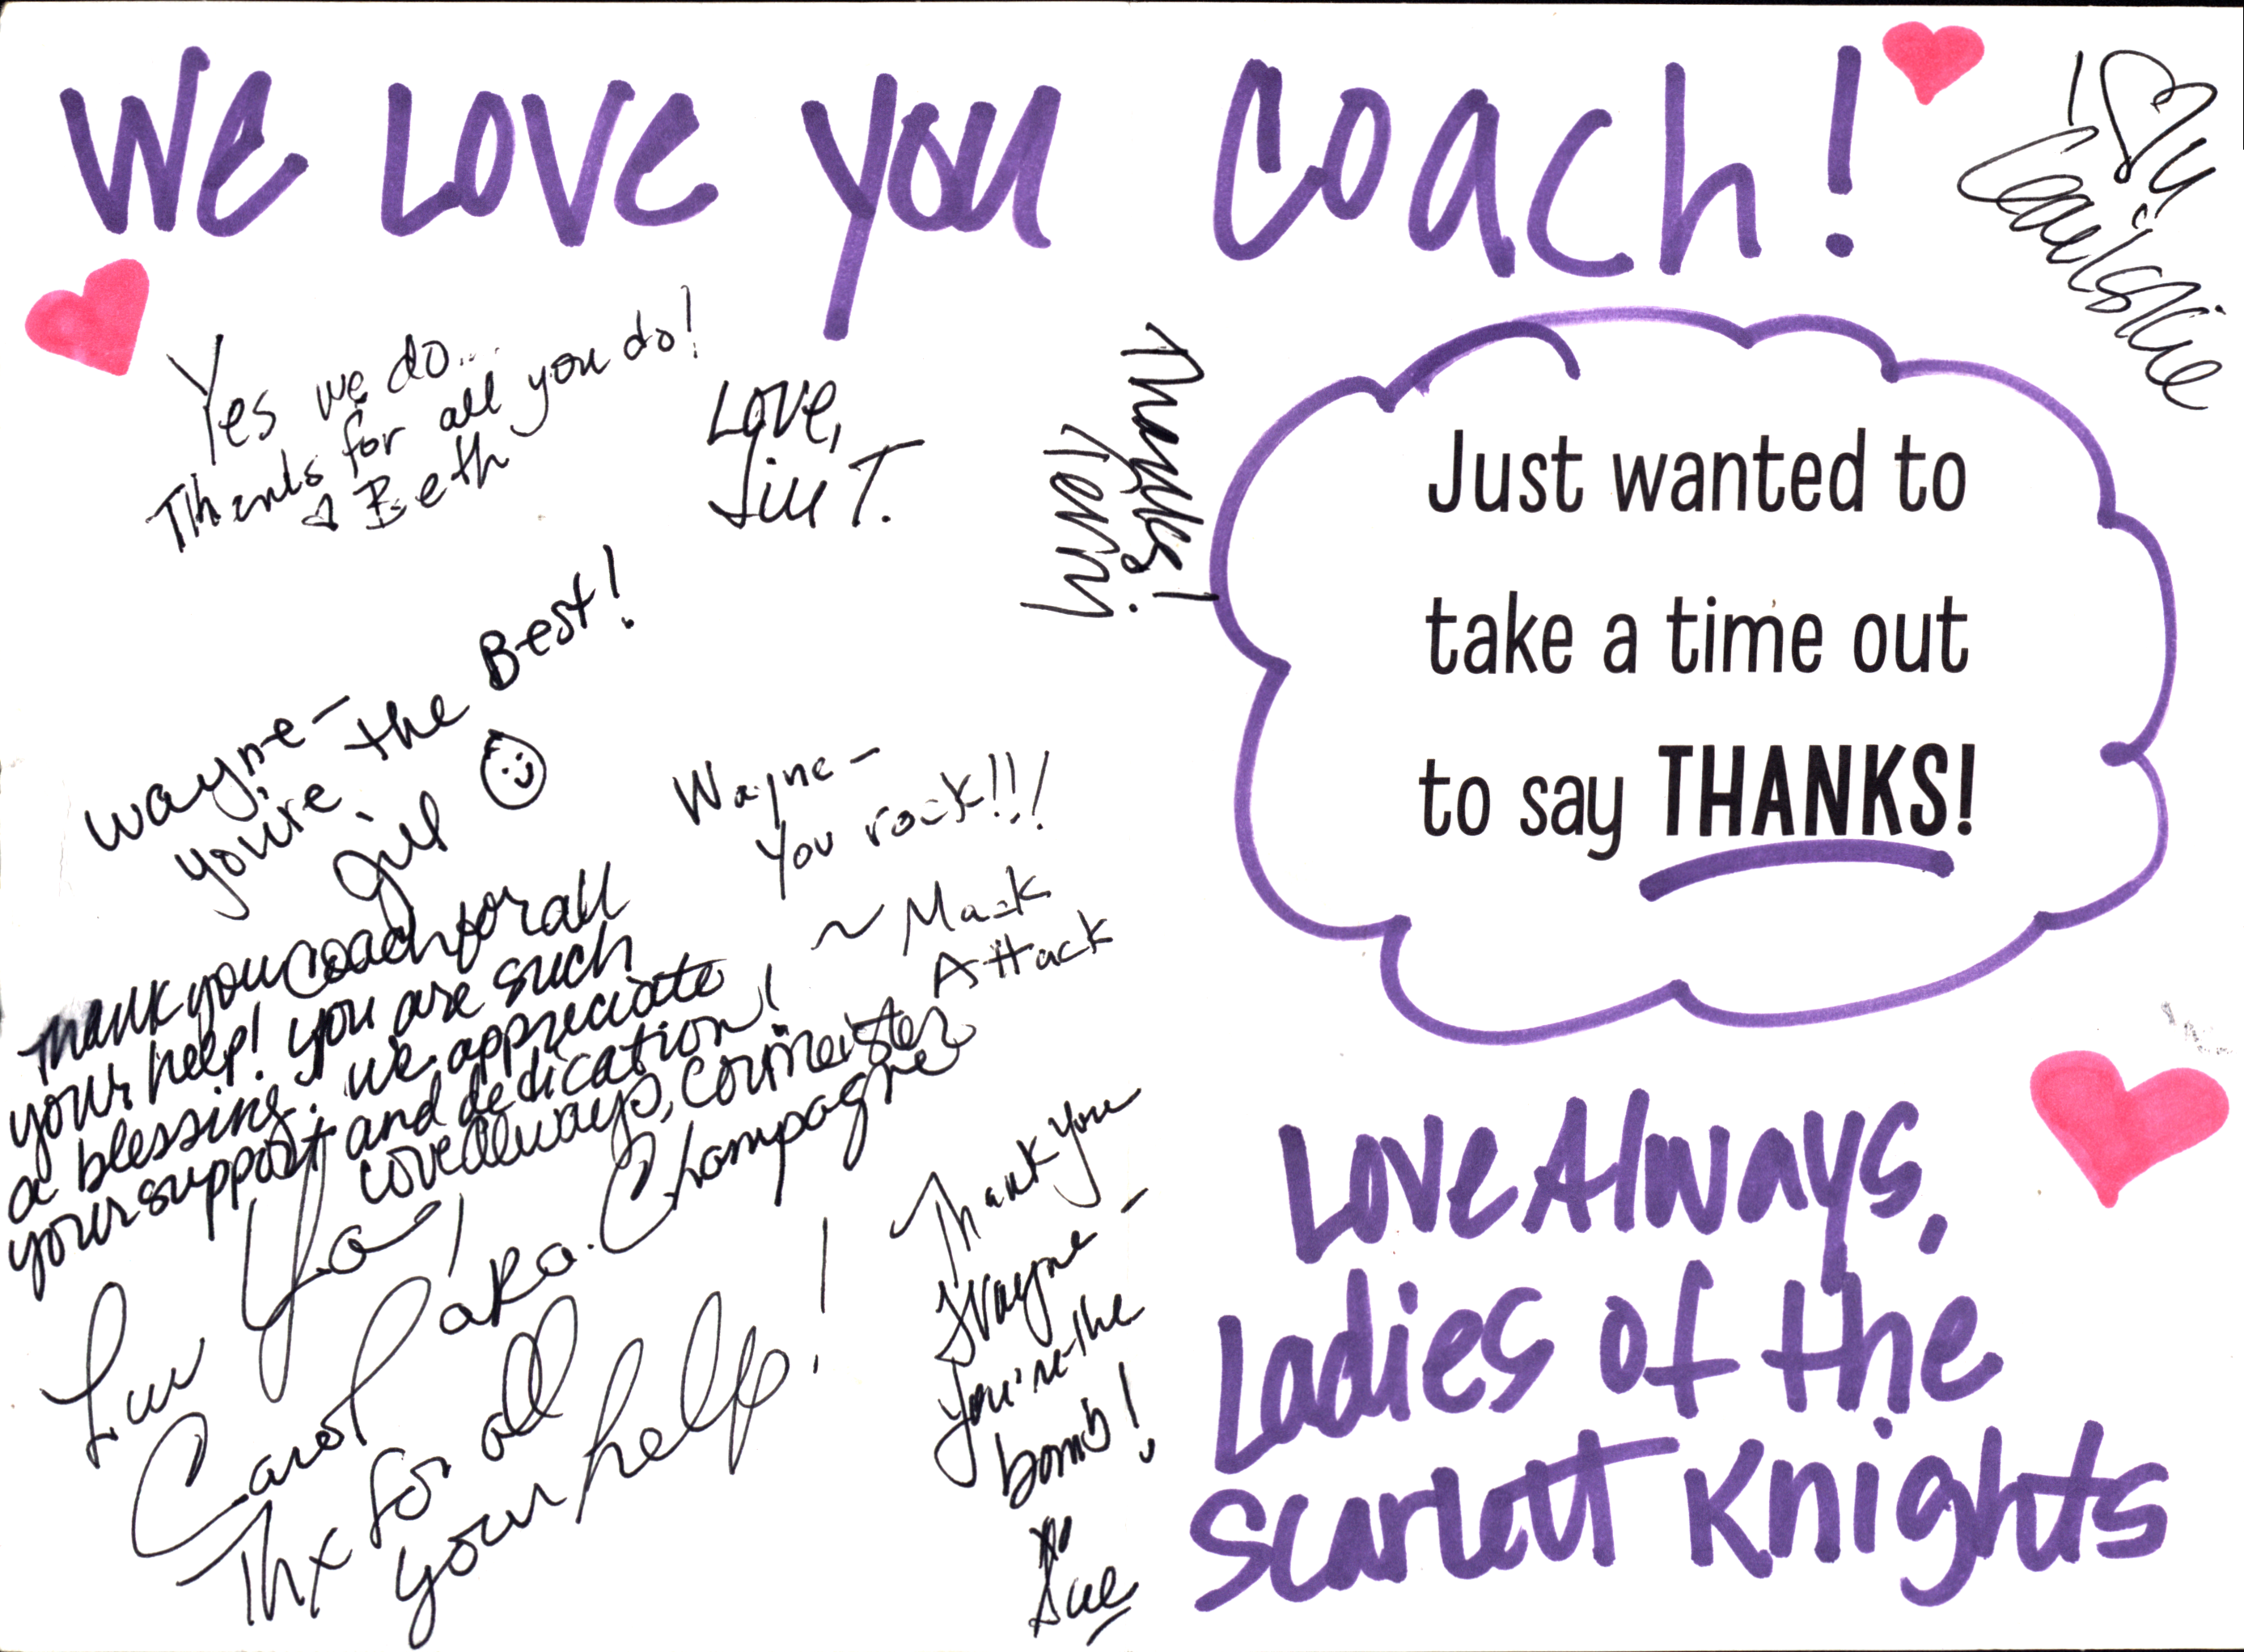 WE LOVE YOU COACH!
I ♡ U
Yes we do...
Thanks for all you do!
Beth
Love,
Jill T.
Thanks!
Terri
Just wanted to
take a time out
to say THANKS!
Wayne-
you're the Best!
Jill
Wayne-
You rock!!!
~ Mack
Attack
Thank you coach for all
your help! you are such
a blessing. we appreciate
your support and dedication!
Love always,
Luv Ya!
Carol aka. Champagne
Thx for all
your help!
Thank You
Wayne-
You're the
bomb!
Sue
Love Always,
Ladies of the
Scarlett Knights